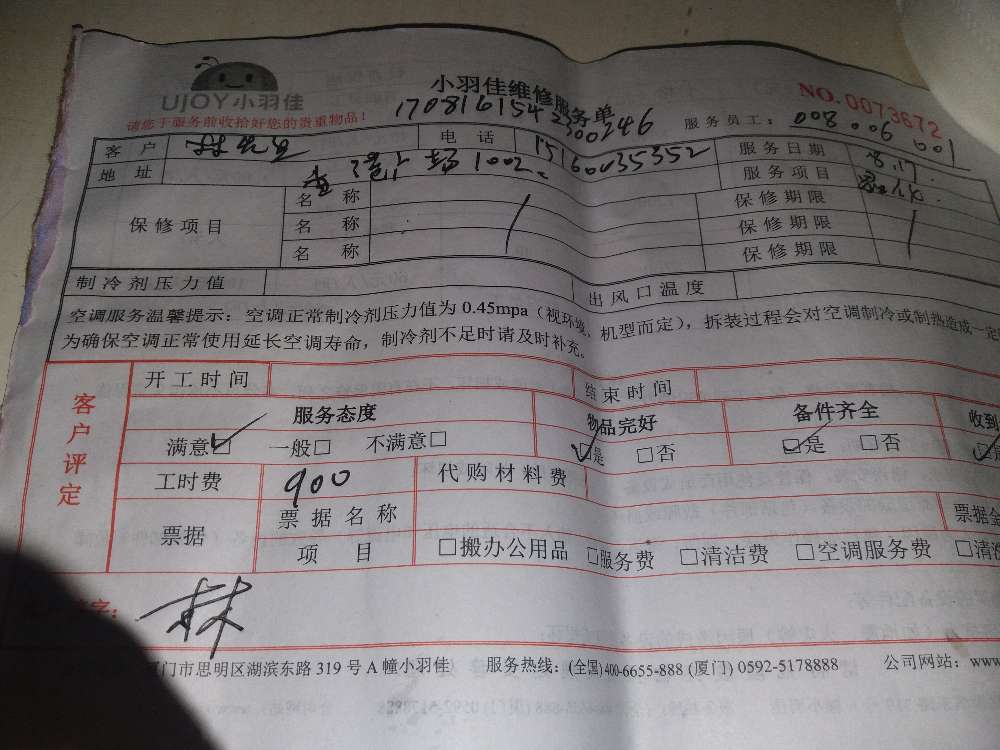 UJOY小羽佳
小羽佳维修服务单
NO.0073672
请您于服务前收拾好您的贵重物品！
1708161542300246
服务员工：008.006 001
客户 电话 15160035352 服务日期 8.17.
地址 1002. 服务项目
保修项目 名称 保修期限
名称 保修期限
名称 保修期限
制冷剂压力值 出风口温度
空调服务温馨提示：空调正常制冷剂压力值为0.45mpa（视环境，机型而定），拆装过程会对空调制冷或制热造成一定
为确保空调正常使用延长空调寿命，制冷剂不足时请及时补充。
客户评定
开工时间 结束时间
服务态度 物品完好 备件齐全 收到
满意☑ 一般□ 不满意□ ☑是 □否 ☑是 □否
工时费 900 代购材料费
票据 票据名称 票据金
项目 □搬办公用品 □服务费 □清洁费 □空调服务费 □清洗
字：林
门市思明区湖滨东路319号A幢小羽佳 服务热线：(全国)400-6655-888 (厦门) 0592-5178888 公司网站：www